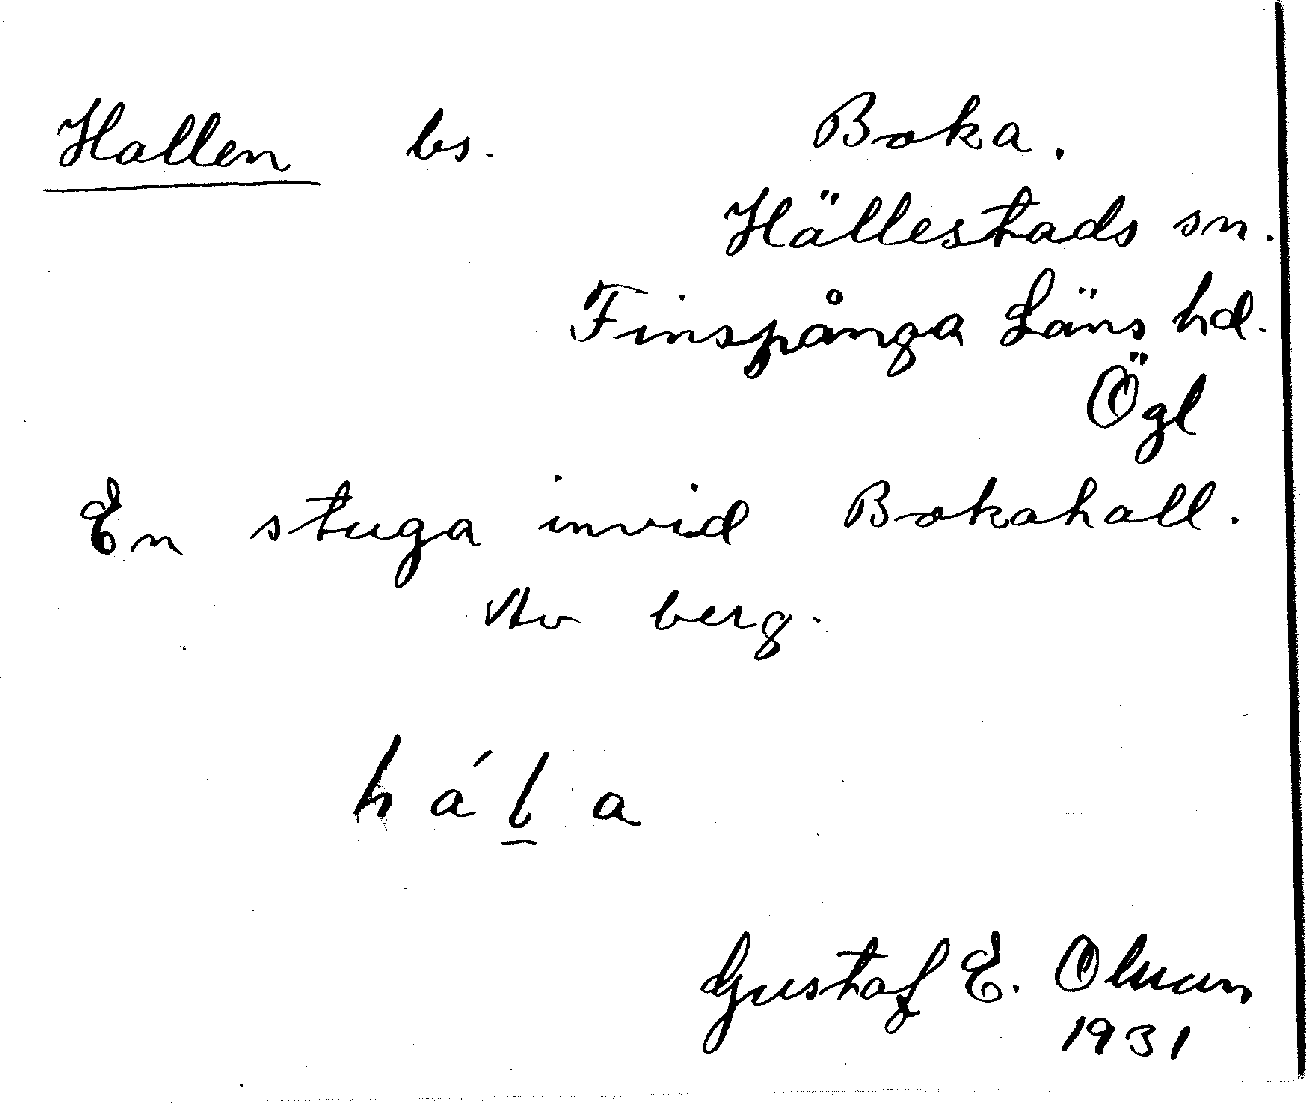 Hallen bs. Boka.
Hällestads sn.
Finspånga Läns hd.
Ögl
En stuga invid Bokahall.
Av berg.
háḻa
Gustaf E. Olsson
1931